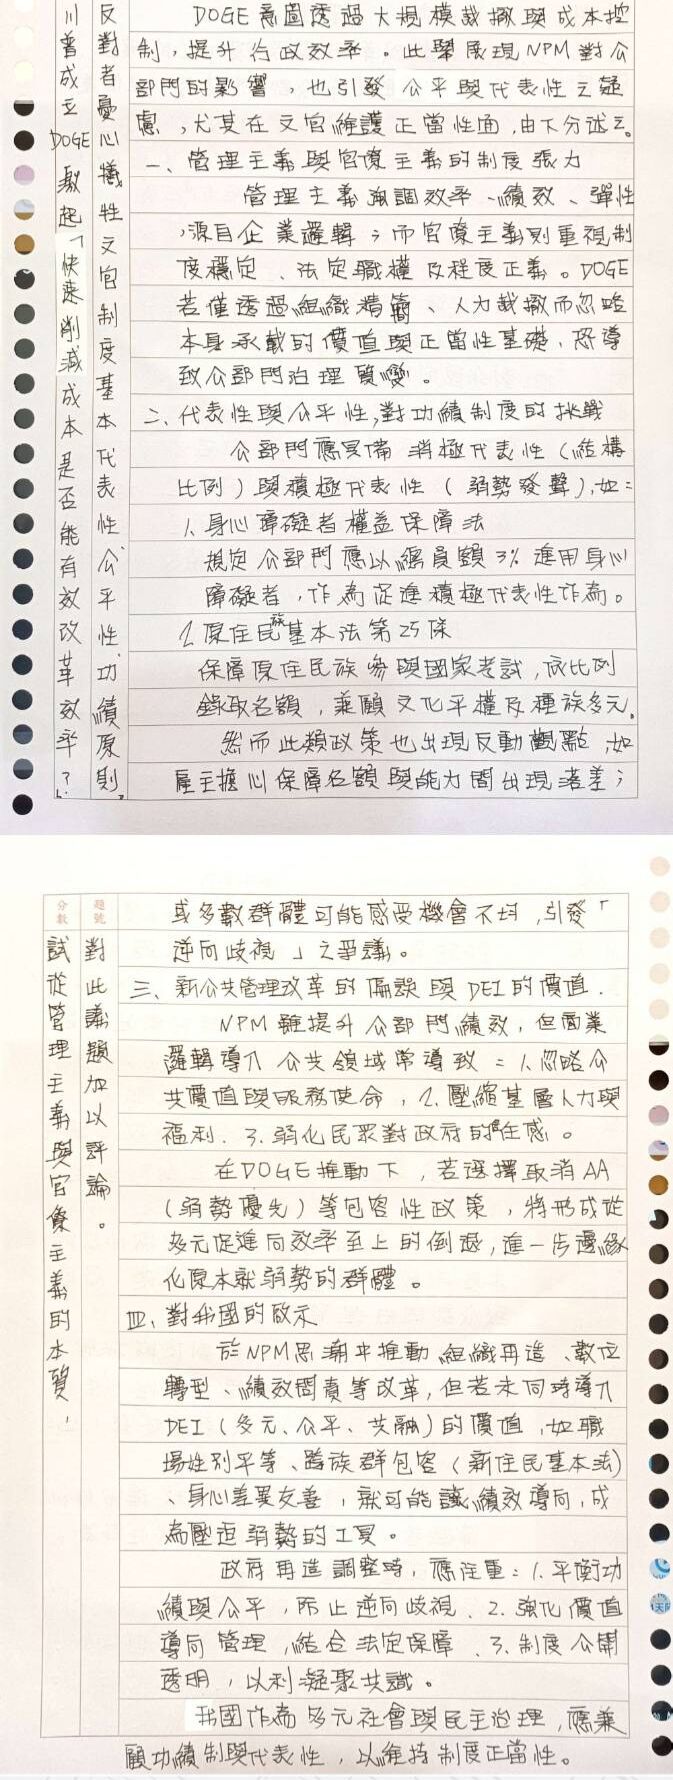 川普成立DOGE激起「快速削減成本是否能有效改革效率？」
反對者憂心犧牲文官制度基本代表性、公平性、功績原則，
DOGE意圖透過大規模裁撤與成本控
制，提升行政效率。此舉展現NPM對公
部門的影響，也引發公平與代表性之疑
慮，尤其在文官維護正當性面，由下分述之。
一、管理主義與官僚主義的制度張力
管理主義強調效率、績效、彈性
，源自企業邏輯；而官僚主義則重視制
度穩定、法定職權及程度正義。DOGE
若僅透過組織精簡、人力裁撤而忽略
本身承載的價值與正當性基礎，恐導
致公部門治理質變。
二、代表性與公平性，對功績制度的挑戰
公部門應具備消極代表性（結構
比例）與積極代表性（弱勢發聲），如：
1. 身心障礙者權益保障法
規定公部門應以總員額3%進用身心
障礙者，作為促進積極代表性作為。
2. 原住民族基本法第25條
保障原住民族參與國家考試，依比例
錄取名額，兼顧文化平權及種族多元。
然而此類政策也出現反動觀點，如
雇主擔心保障名額與能力間出現落差；
分數
題號
試從管理主義與官僚主義的本質，
對此議題加以評論。
或多數群體可能感受機會不均，引發「
逆向歧視」之爭議。
三、新公共管理改革的偏誤與DEI的價值.
NPM雖提升公部門績效，但商業
邏輯導入公共領域常導致：1. 忽略公
共價值與服務使命，2. 壓縮基層人力與
福利. 3. 弱化民眾對政府的信任感。
在DOGE推動下，若選擇取消AA
（弱勢優先）等包容性政策，將形成從
多元促進向效率至上的倒退，進一步邊緣
化原本就弱勢的群體。
四、對我國的啟示
於NPM思潮中推動組織再造、數位
轉型、績效問責等改革，但若未同時導入
DEI（多元、公平、共融）的價值，如職
場性別平等、跨族群包容（新住民基本法）
、身心差異友善，就可能讓績效導向，成
為壓迫弱勢的工具。
政府再造調整時，應注重：1. 平衡功
績與公平，防止逆向歧視. 2. 強化價值
導向管理，結合法定保障. 3. 制度公開
透明，以利凝聚共識。
我國作為多元社會與民主治理，應兼
顧功績制與代表性，以維持制度正當性。